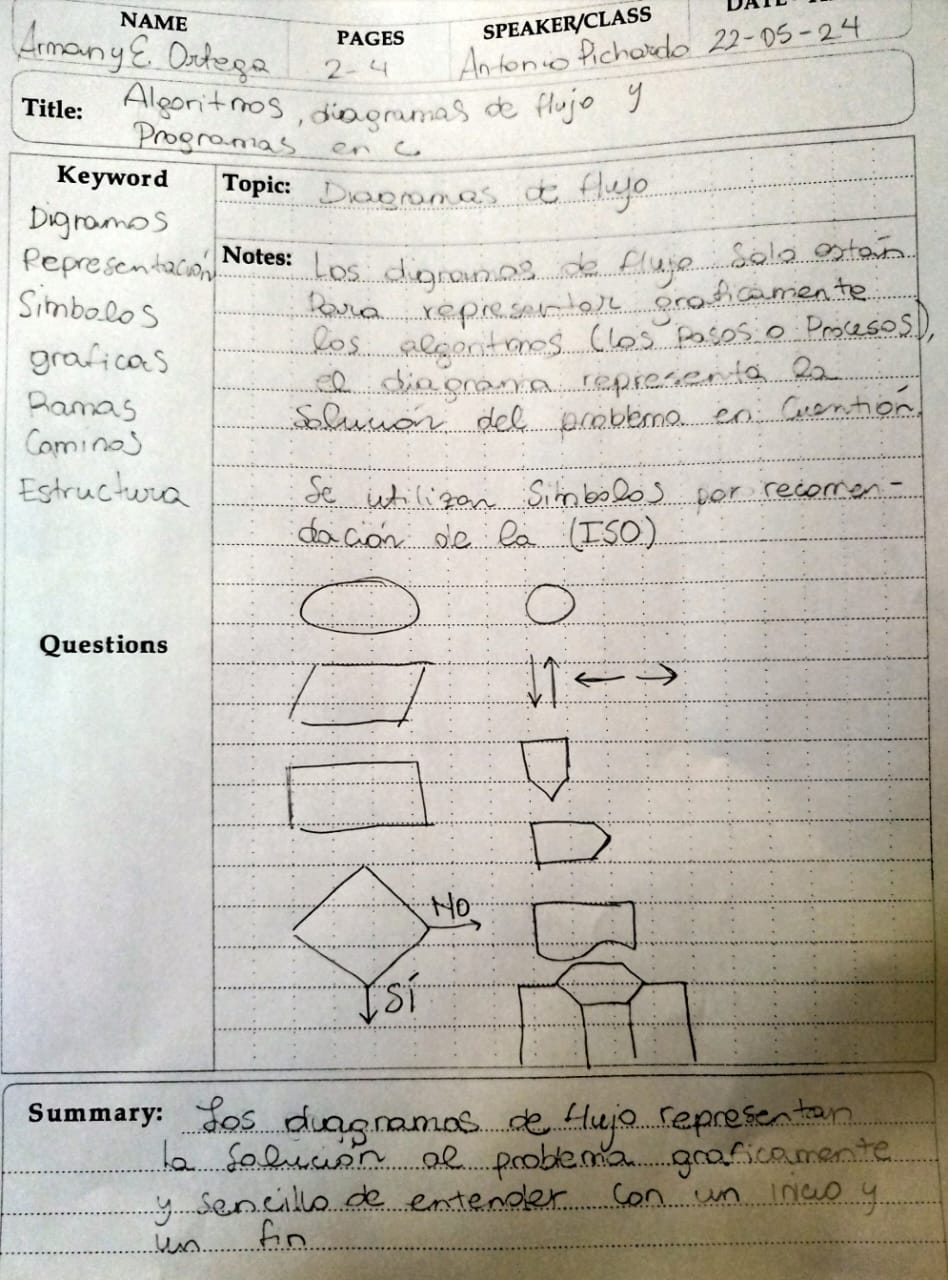 NAME
Armany E. Ortega
PAGES
2-4
SPEAKER/CLASS
Antonio Pichardo
22-05-24
Title: Algoritmos, diagramas de flujo y
Programas en c.
Keyword
Digramos
Representación
Simbolos
graficas
Ramas
Caminos
Estructura
Questions
Topic: Diagramas de flujo
Notes: Los digramas de flujo Solo están
Para representar graficamente
los algoritmos (los Pasos o Procesos),
el diagrama representa la
Solución del problema en Cuentión.
Se utilizan Simbolos por recomen-
dación de la (ISO)
NO
SÍ
Summary: Los diagramas de flujo representan
la Solución al problema graficamente
y sencillo de entender con un inicio y
un fin